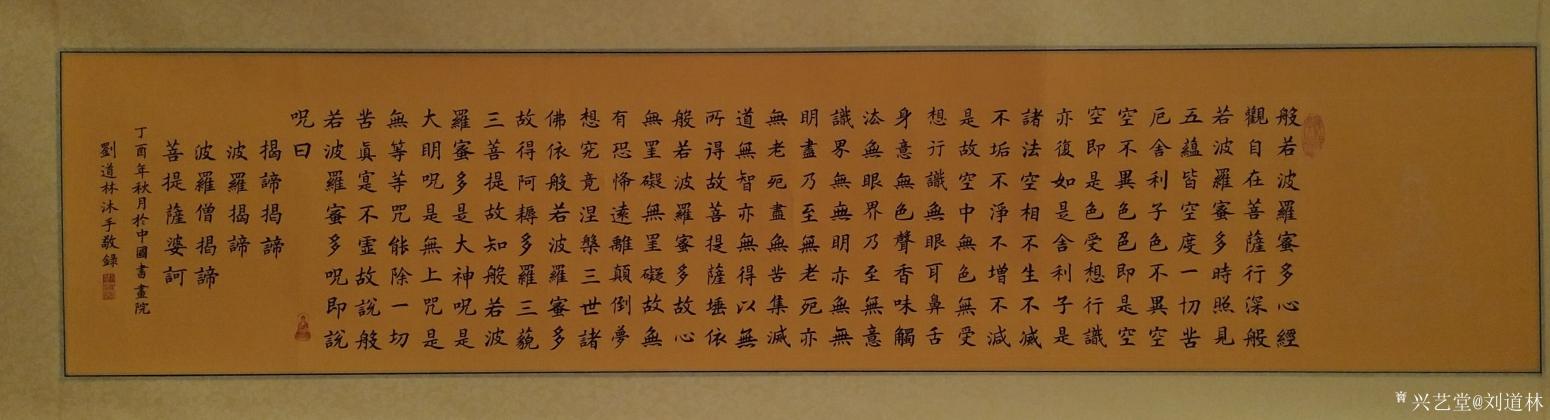 般若波羅蜜多心經
觀自在菩薩行深般
若波羅蜜多時照見
五蘊皆空度一切苦
厄舍利子色不異空
空不異色色即是空
空即是色受想行識
亦復如是舍利子是
諸法空相不生不滅
不垢不淨不增不減
是故空中無色無受
想行識無眼耳鼻舌
身意無色聲香味觸
法無眼界乃至無意
識界無無明亦無無
明盡乃至無老死亦
無老死盡無苦集滅
道無智亦無得以無
所得故菩提薩埵依
般若波羅蜜多故心
無罣礙無罣礙故無
有恐怖遠離顛倒夢
想究竟涅槃三世諸
佛依般若波羅蜜多
故得阿耨多羅三藐
三菩提故知般若波
羅蜜多是大神呪是
大明呪是無上咒是
無等等咒能除一切
苦眞寔不虛故說般
若波羅蜜多呪即說
呪曰
揭諦揭諦
波羅揭諦
波羅僧揭諦
菩提薩婆訶
丁酉年秋月於中國書畫院
劉道林沐手敬錄
兴艺堂@刘道林